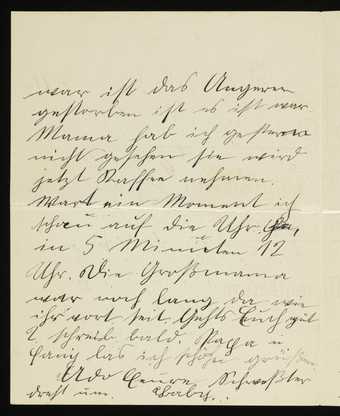 war ist das Ungerer
gestorben ist es ist war
Mama hab ich gestern
nicht gesehen sie wird
jetzt Kaffee nehmen.
Wart ein Moment ich
schau auf die Uhr.
in 5 Minuten 12
Uhr. Die Großmama
war noch lang da wie
ihr vort seit
schreib bald. Papa u
las ich schön grüßen
Ado Schweßter
dreht um.